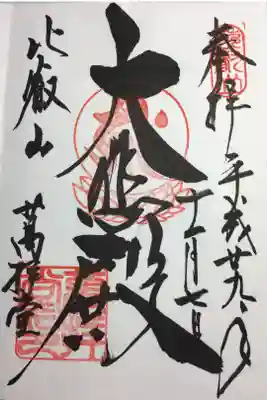 奉拝
平成廿九年
十一月七日
大悲殿
比叡山
萬拝堂